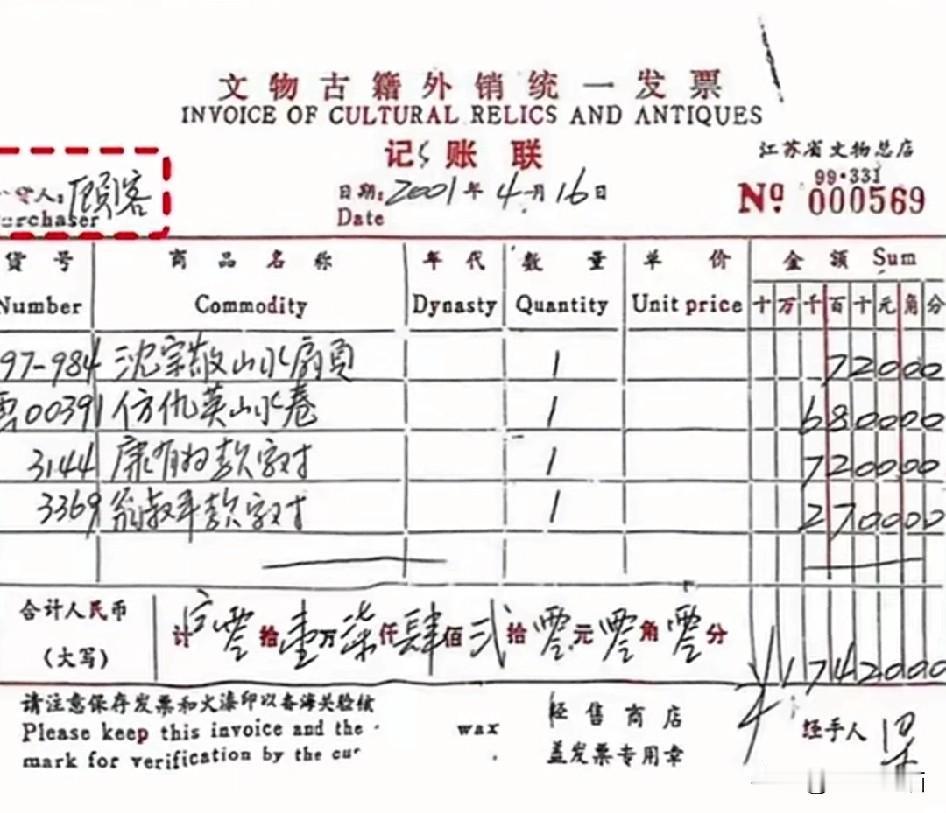 文物古籍外销统一发票
INVOICE OF CULTURAL RELICS AND ANTIQUES
记账联
江苏省文物总店
99·331
货人:顾客
urchaser
日期:2001年4月16日
Date
Nº 000569
货号 商品名称 年代 数量 单价 金额 Sum
Number Commodity Dynasty Quantity Unit price 十万千百十元角分
97-984 沈宗敬山水扇页 1 72000
00391 仿仇英山水卷 1 680000
3144 康有为款字对 1 720000
3369 翁叔平款字对 1 270000
合计人民币
(大写)
计 零拾壹万柒仟肆佰贰拾零元零角零分
1742000
请注意保存发票和火漆印以备海关验核
Please keep this invoice and the wax
mark for verification by the cu
经售商店
盖发票专用章
经手人